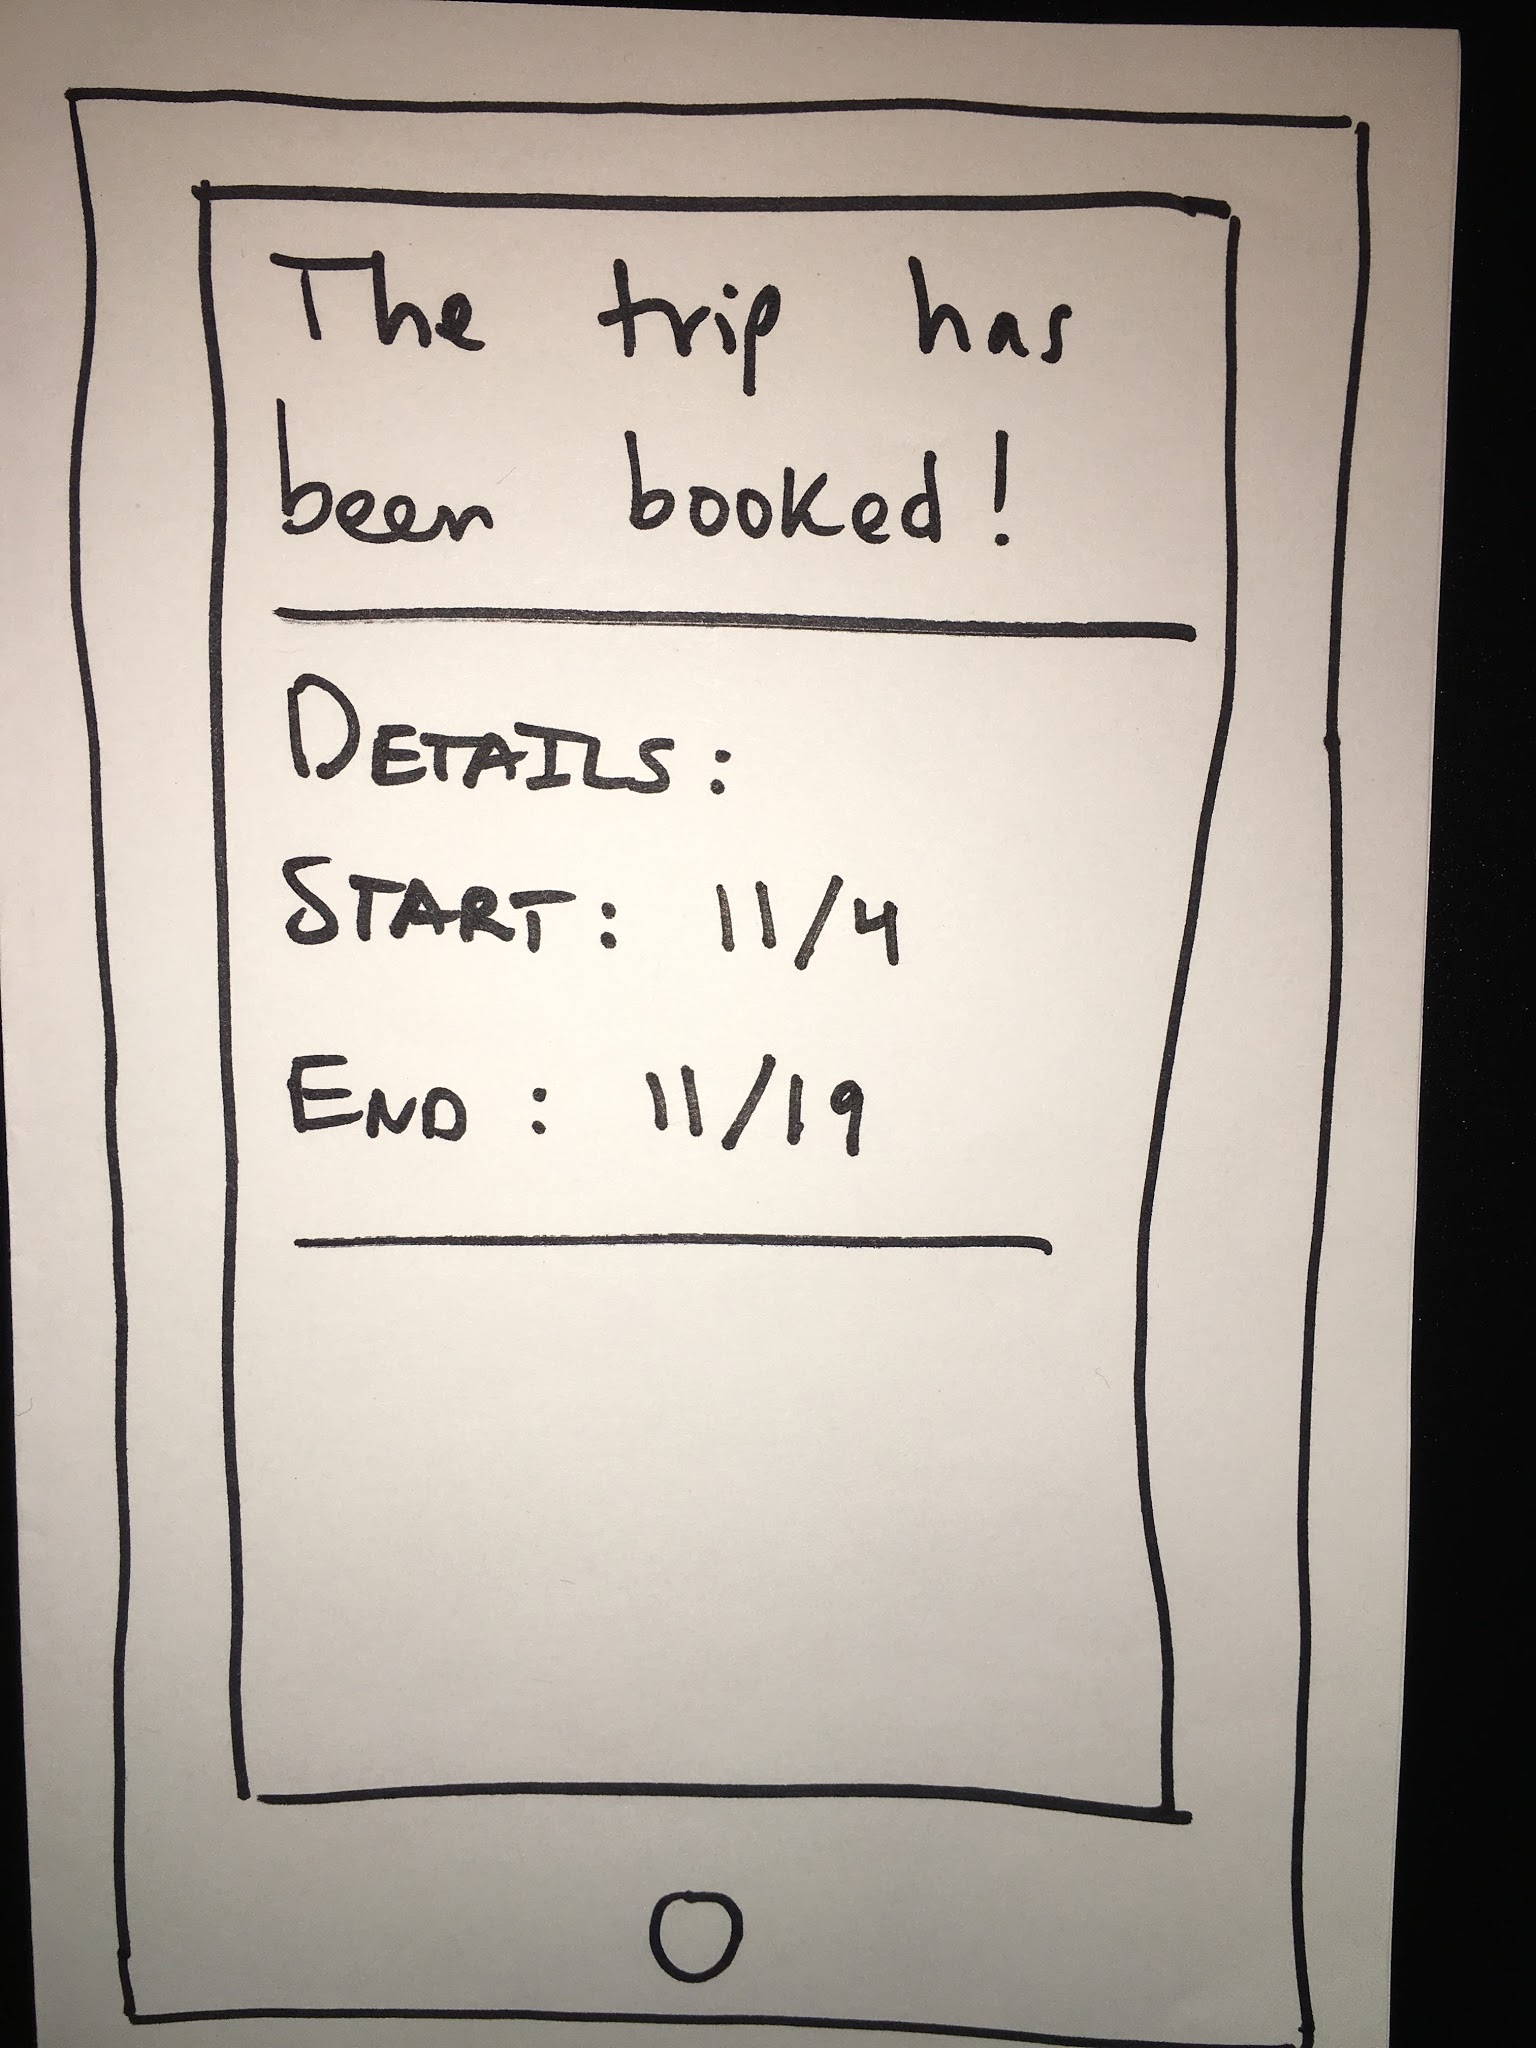 The trip has
been booked!
DETAILS:
START: 11/4
END: 11/19